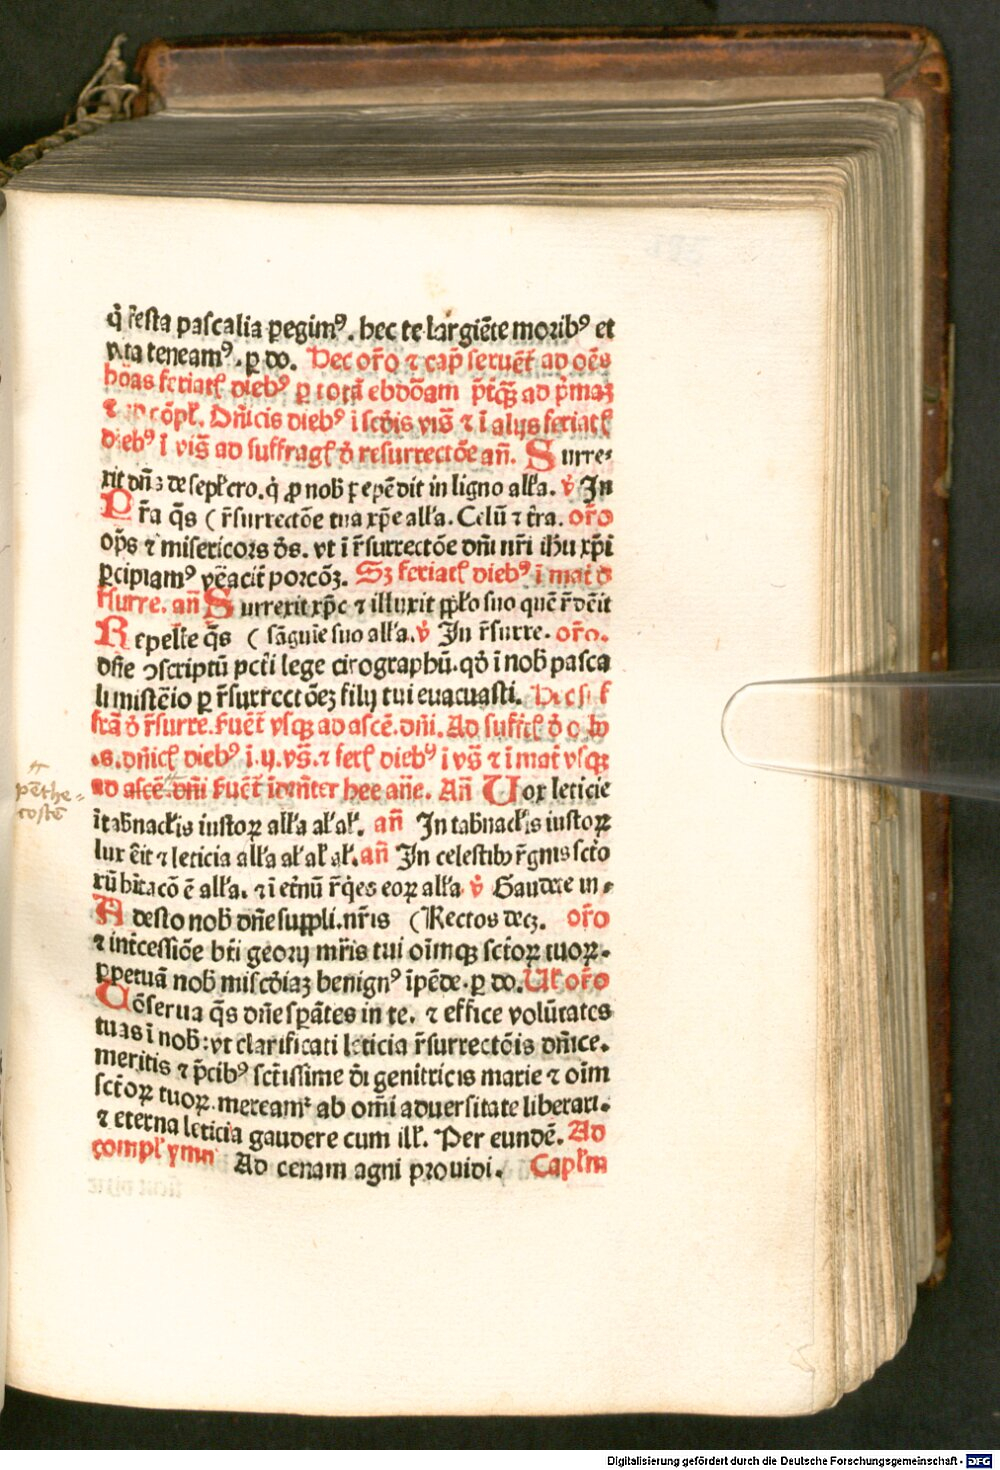 q̇ festa pascalia ꝑegimꝰ. hec te largiēte moribꝰ et
vita teneamꝰ. ꝑ dō. Hec or̄o ⁊ cap̄ seruēt̄ ad oēs
horas feriatꝭ diebꝰ ꝑ totā ebdōam p̄tqꝫ ad p̄maꝫ
⁊ ad cōpł. Dn̄icis diebꝰ ī scd̄is vis̄ ⁊ ī alijs feriatꝭ
diebꝰ ī vis̄ ad suffragꝭ ď resurrectōe an̄. Surre⸗
xit dn̄s de sepłcro. q̇ ꝓ nob̄ ꝑepēdit in ligno ałła. v̇ In
Pr̄a q̄s ( r̄surrectōe tua xp̄e ałła. Celū ⁊ t̄ra. or̄o
op̄s ⁊ misericors d̄s. vt ī r̄surrectōe dn̄i nr̄i ihū xp̄i
ꝑcipiamꝰ veracit̄ porcōꝫ. Sꝫ feriatꝭ diebꝰ ī mat̄ ď
r̄surre. an̄ Surrexit xp̄c ⁊ illuxit pp̄ło suo quē r̄dēit
Repelle q̄s ( sāguīe suo ałła. v̇ In r̄surre. or̄o.
dn̄e ↄscriptū pct̄i lege cirographū. qd̄ ī nob̄ pasca
li mist̄eio ꝑ r̄surrectōeꝫ filij tui euacuasti.
ď r̄surre. fuēt̄ vsqꝫ ad ascē. dn̄i. Ad suffrꝭ
.s. dn̄icꝭ diebꝰ ī .ij. vs̄. ⁊ ferꝭ diebꝰ ī vs̄ ⁊ ī mat̄ vsqꝫ
ad ascē. dn̄i fuēt̄ īdn̄ter hee an̄e. An̄ Vox leticie
pētheꝫ
costē
ī tab̄nacłis iustoꝝ ałła ał ał. an̄ In tab̄nacłis iustoꝝ
lux ēit ⁊ leticia ałła ał ał ał. an̄ In celestibꝫ r̄gnis sct̄o
rū bītacō ē ałła. ⁊ ī et̄nū r̄q̇es eoꝝ ałła v̇ Gaudete in⸗
Adesto nob̄ dn̄e suppli. nr̄is (Rectos decꝫ. or̄o
⁊ int̄cessiōe bt̄i georij mr̄is tui oīmqꝫ sct̄oꝝ tuoꝝ.
ꝑpetuā nob̄ mīsćdiaꝫ benignꝰ īpēde. ꝑ dō. Ał or̄o
Cōserua q̄s dn̄e sꝑātes in te. ⁊ effice volūtates
tuas ī nob̄: vt clarificati leticia r̄surrectōis dn̄ice.
meritis ⁊ p̄cibꝰ sct̄issime dī genitricis marie ⁊ oīm
sct̄oꝝ tuoꝝ. mereamᷣ ab om̄i aduersitate liberari.
⁊ eterna leticia gaudere cum ill̄. Per eundē. Ad
compł ymn̄ Ad cenam agni prouidi. Capłm
Digitalisierung gefördert durch die Deutsche Forschungsgemeinschaft - DFG